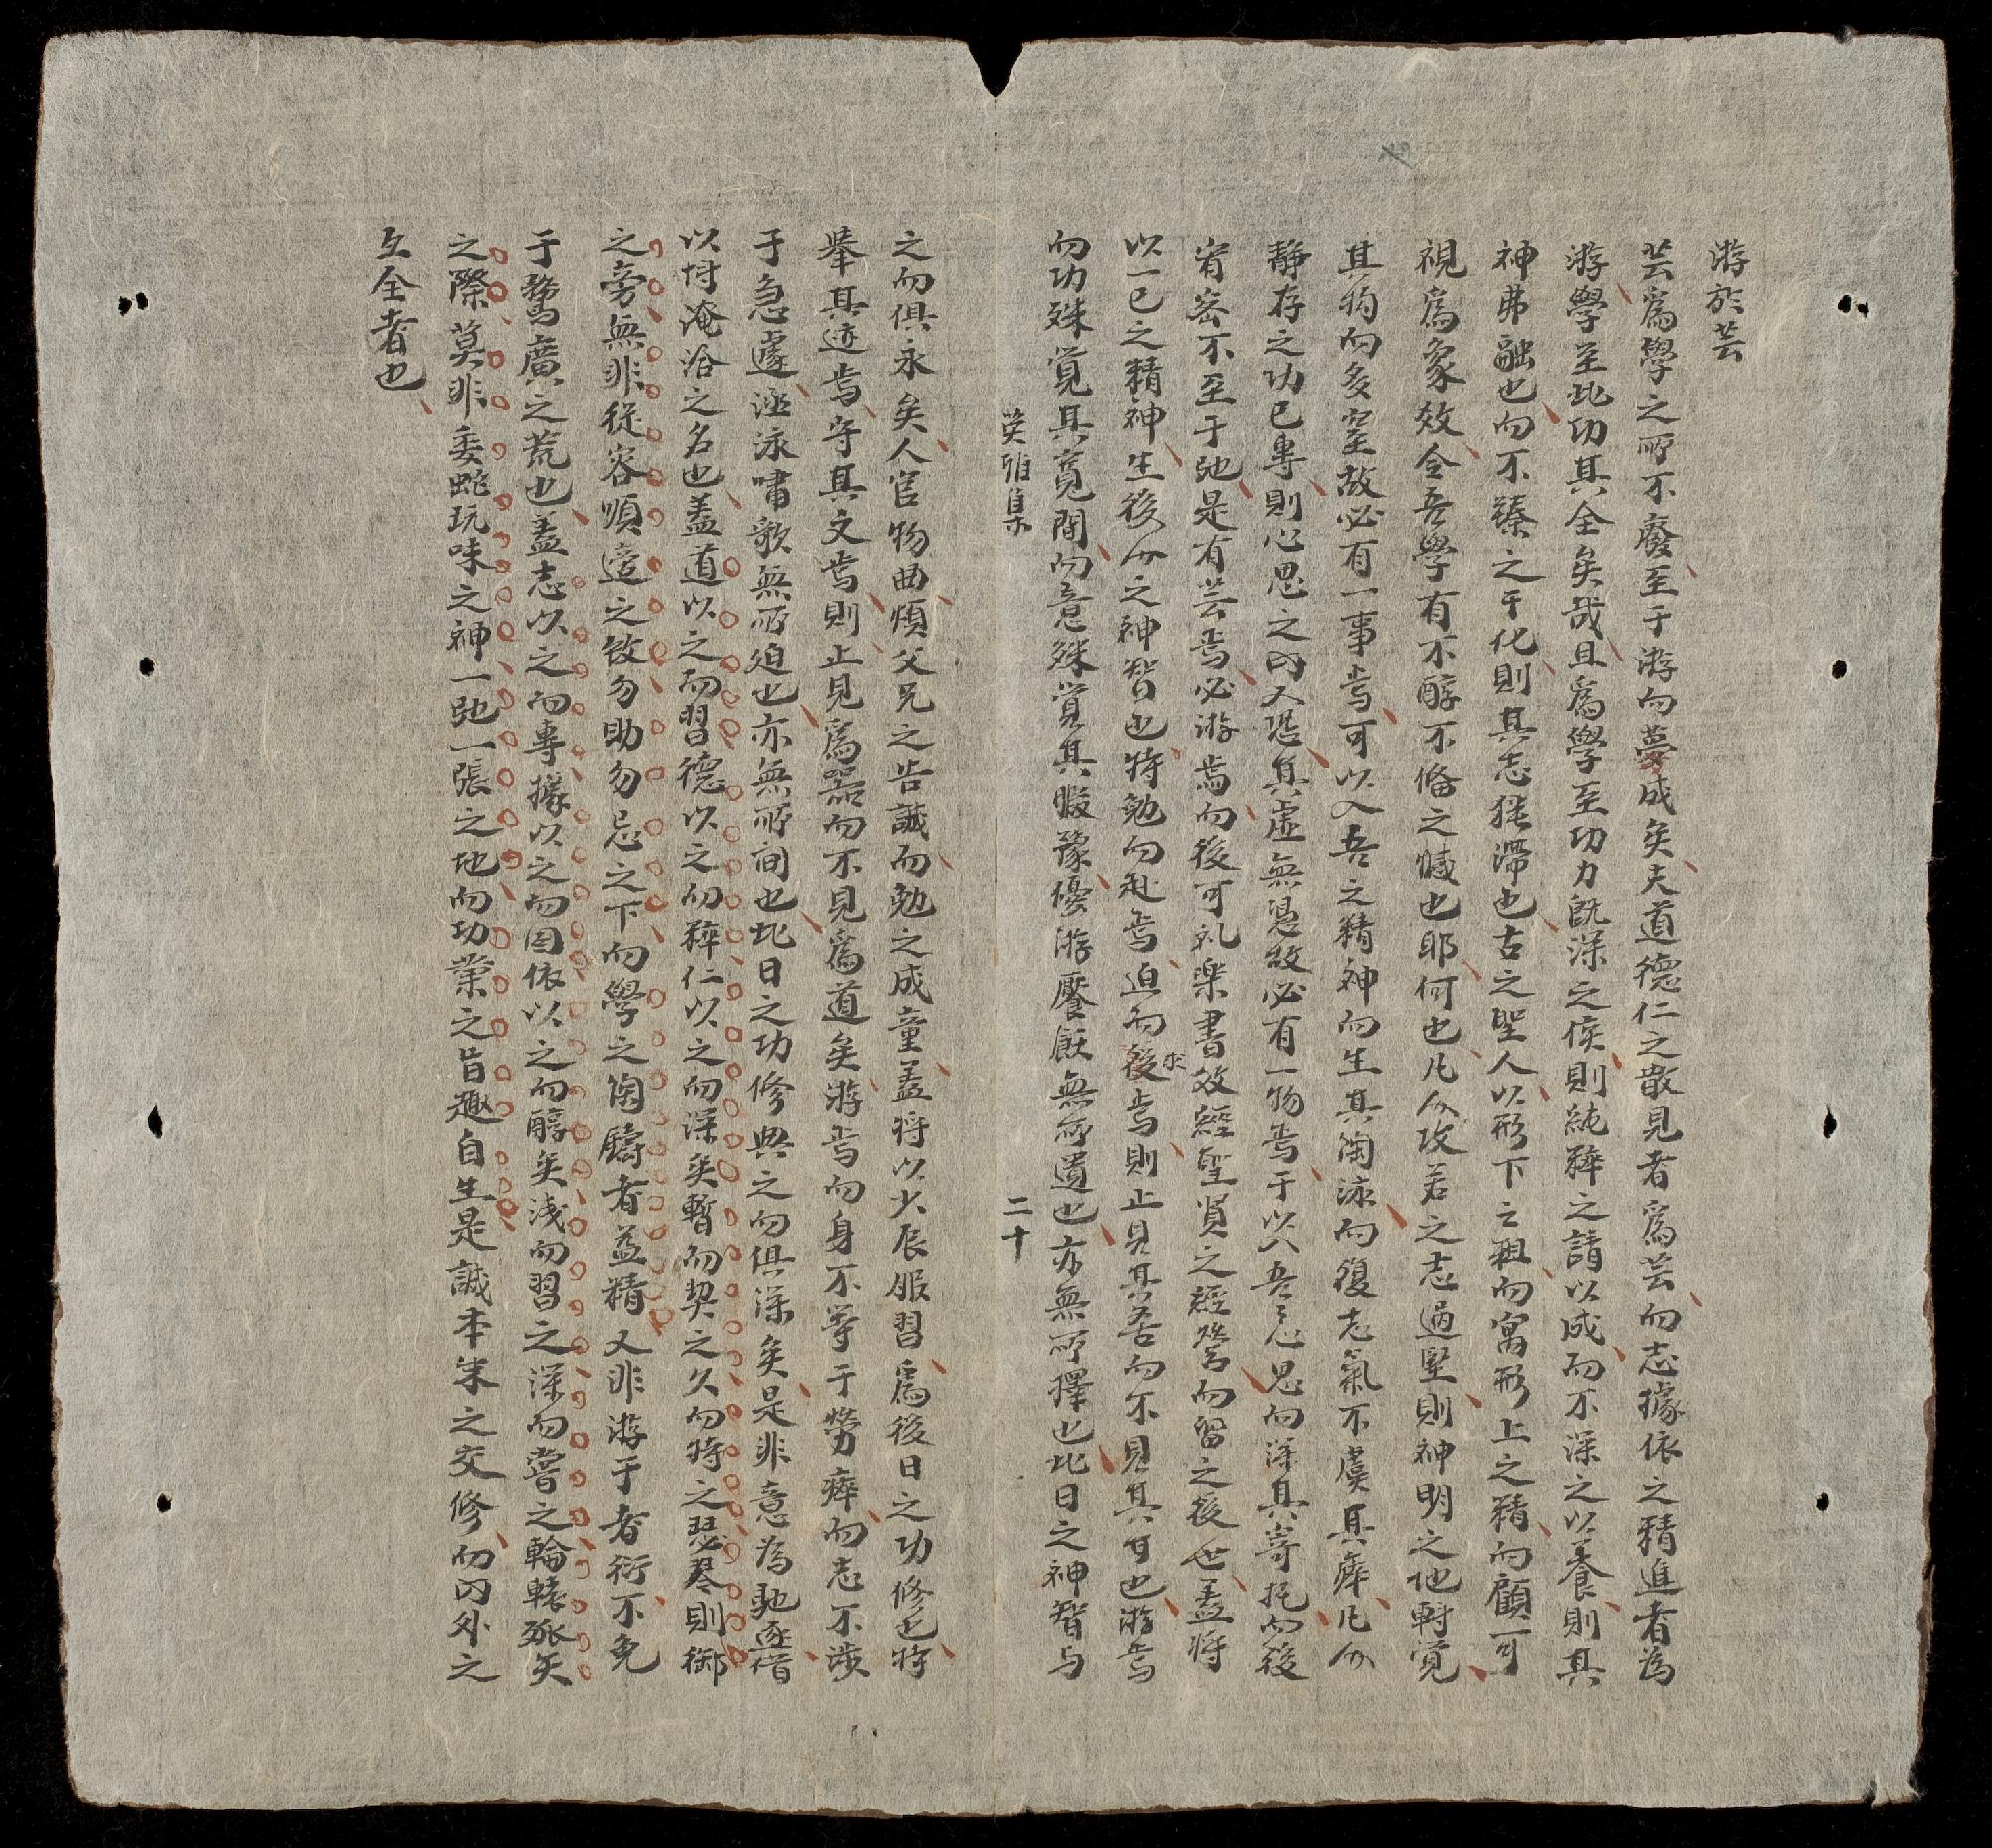 游於芸
芸爲學之所不廢至于游而夢成矣夫道德仁之散見者爲芸而志據依之精進者為
游學至此功其全矣哉且爲學至功力既深之侯則純粹之詣以成而不深之以養則其
神弗融也而不臻之于化則其志猶滯也古之聖人以形下之粗而寓形上之精而顧可
視爲象效令吾學有不醇不俻之憾也耶何也凡人攻若之志過堅則神明之地轉覺
其拘而多窒故必有一事焉可以入吾之精神而生其陶泳而復志氣不虞其瘁凡人
静存之功已專則心思之内又恐其虛無憑故必有一物焉于以入吾之心思而深其寄托而後
宥密不至于弛是有芸焉必游焉而後可礼楽書效經聖賢之經營而留之後世盖将
以一已之精神生後人之神智也特勉而赴焉迫而後求焉則止見其苦而不見其可也游焉
而功殊覚其寬閒而意殊覚其暇豫優游饜飫無所遺也亦無所擇也此日之神智与
英雅集
二十
之而俱永矣人官物曲煩父兄之告誡而勉之成童盖将以少辰服習爲後日之功修也特
舉其迹焉守其文焉則止見爲器而不見爲道矣游焉而身不等于勞瘁而志不涉
于急遽涵泳嘯歌無所迫也亦無所间也此日之功修與之而俱深矣是非意為馳逐借
以博淹洽之名也盖道以之而習德以之而粹仁以之而深矣暫而契之久而特之瑟琴則御
之旁無非從容順適之致勿助勿忘之下而學之陶鑄者益精又非游于者衍不免
于騖廣之荒也盖志以之而專據以之而固依以之而醇矣浅而習之深而嘗之輪轅弧矢
之際莫非委蛇玩味之神一弛一張之地而功業之旨趣自生是誠本末之交修而内外之
互全者也